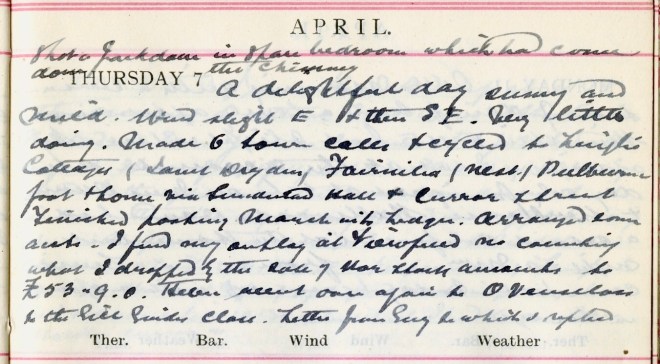 APRIL.
Shot a Jackdaw in spare bedroom which had come
down the chimney
THURSDAY 7
A delightful day sunny and
mild. Wind slight E & then S.E. Very little
doing. Made 6 town calls & cycled to
Cottages (Janet Dryden) Fairnilee (Nesbit)
foot & home via Hall & Street
Finished posting March into Ledger. Arranged some
accts. I find my outlay at Viewfield no counting
what I dropped by the sale of War Stock amounts to
£53-9-0. Helen went over again to
to the Girl Guides Class. Letter from & replied
Ther. Bar. Wind Weather